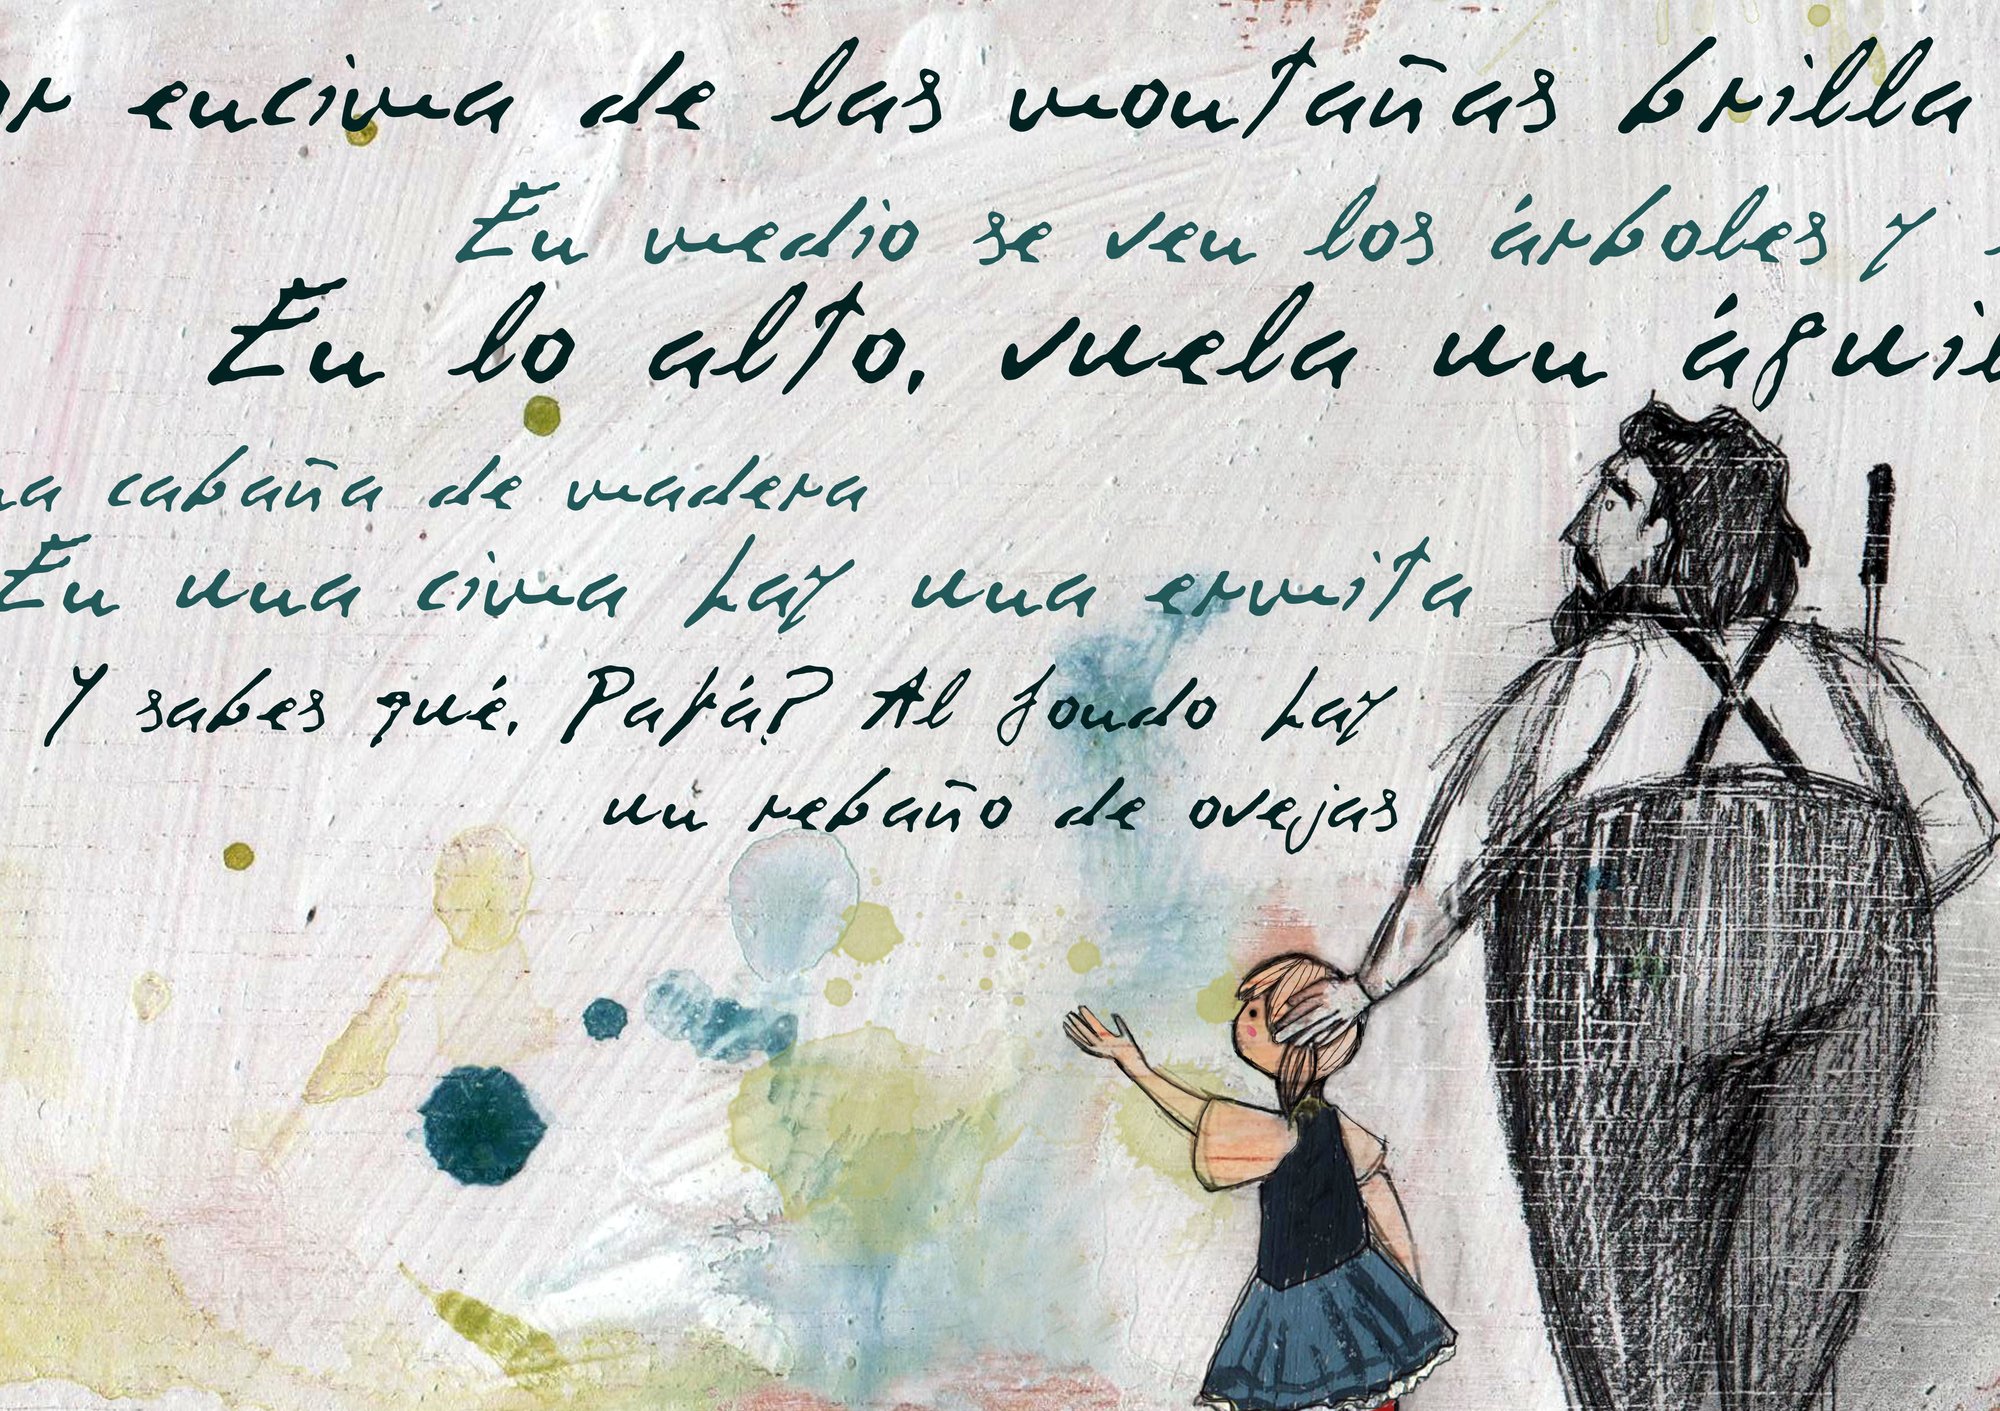 or encima de las montañas brilla
En medio se ven los árboles y
En lo alto, vuela un águil
na cabaña de madera
En una cima hay una ermita
Y sabes qué, Papá? Al fondo hay
un rebaño de ovejas